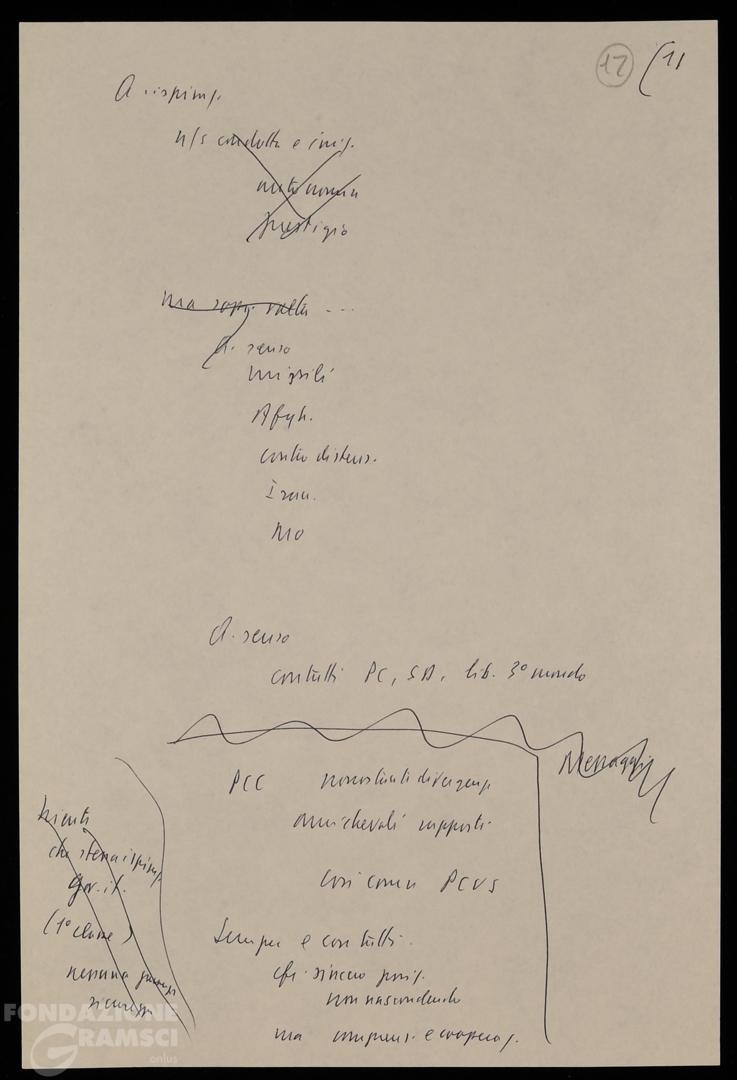 12 (11
A ispiraz.
n/s condotta e iniz.
autonomia
prestigio
ma sopr. volta ...
A. senso
missili
Afgh.
contro distens.
Iran.
MO
A. senso
contatti PC, SD, lib. 3° mondo
Messaggi
PCC nonostanti divergenze
amichevoli rapporti
così come PCUS
Sempre e con tutti.
cfr. sincero posiz.
non nascondendo
ma comprens. e cooperaz.
Niente
che stessa ispiraz.
gov. it.
(1° classe)
nessuna
sicurezza
FONDAZIONE
GRAMSCI
onlus